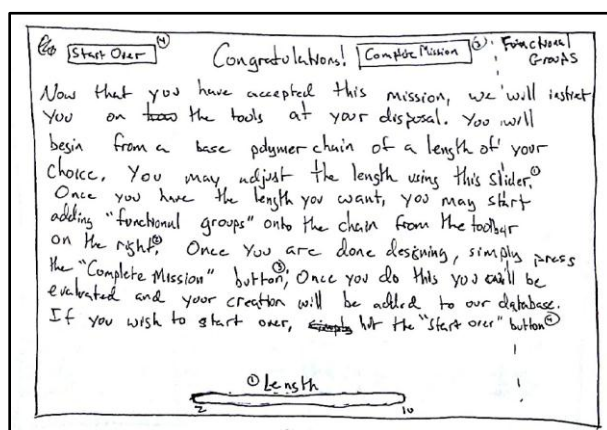 Start Over ④ Congratulations! Complete Mission ③ Functional Groups
Now that you have accepted this mission, we will instruct
you on how the tools at your disposal. You will
begin from a base polymer chain of a length of your
choice. You may adjust the length using this slider.①
Once you have the length you want, you may start
adding "functional groups" onto the chain from the toolbar
on the right.② Once you are done designing, simply press
the "Complete Mission" button.③ Once you do this you will be
evaluated and your creation will be added to our database.
If you wish to start over, simply hit the "Start over" button④
① Length
2 10